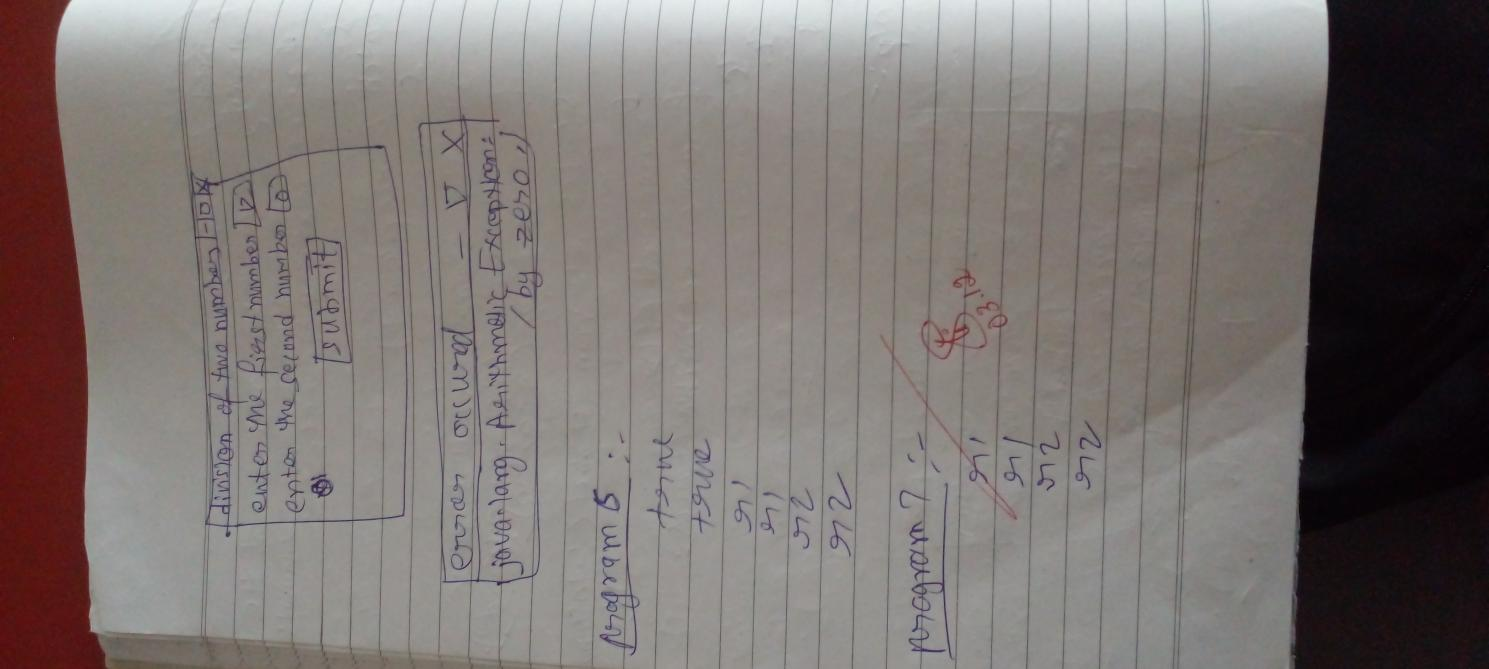 division of two numbers - □ X
enter the first number 12
enter the second number 0
submit
error occured - ▽ X
java.lang.Arithmetic Exception:
/ by zero
Program 6 :-
true
true
r1
r1
r2
r2
Program 7 :-
r1
r1
r2
r2
03.12